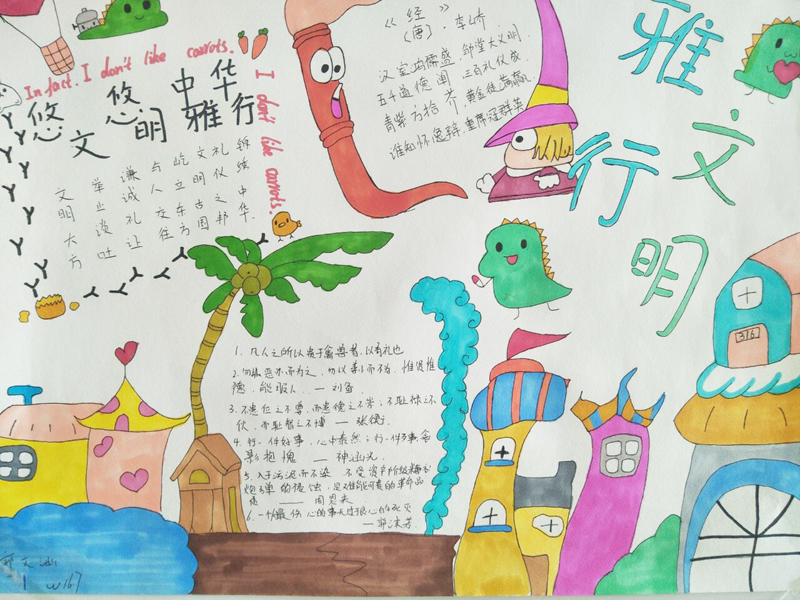 In fact. I don't like carrots.
I don't like carrots.
悠 悠 中 华
文 明 雅 行
锦绣中华
礼仪之邦
文明古国
屹立东方
与人交往
谦诚礼让
举止谈吐
文明大方
《经》
(唐)·李峤
汉室鸿儒盛，邹堂大义明。
五千道德阐，三百礼仪成。
青紫方拾芥，黄金徒满籯。
谁知怀逸辩，重席冠群英
雅 行
文 明
1、凡人之所以贵于禽兽者，以有礼也
2、勿以恶小而为之，勿以善小而不为，惟贤惟
德，能服人。—刘备
3、不患位之不尊，而患德之不崇；不耻禄之不
伙，而耻智之不博 — 张衡
4、行一件好事，心中泰然；行一件歹事，
抱愧 — 神涵光
5、入于污泥而不染、不受资产阶级糖衣
炮弹的侵蚀，是最难能可贵的革命品
质 — 周恩来
6、一个人最伤心的事无过于良心的死灭
— 郭沫若
316